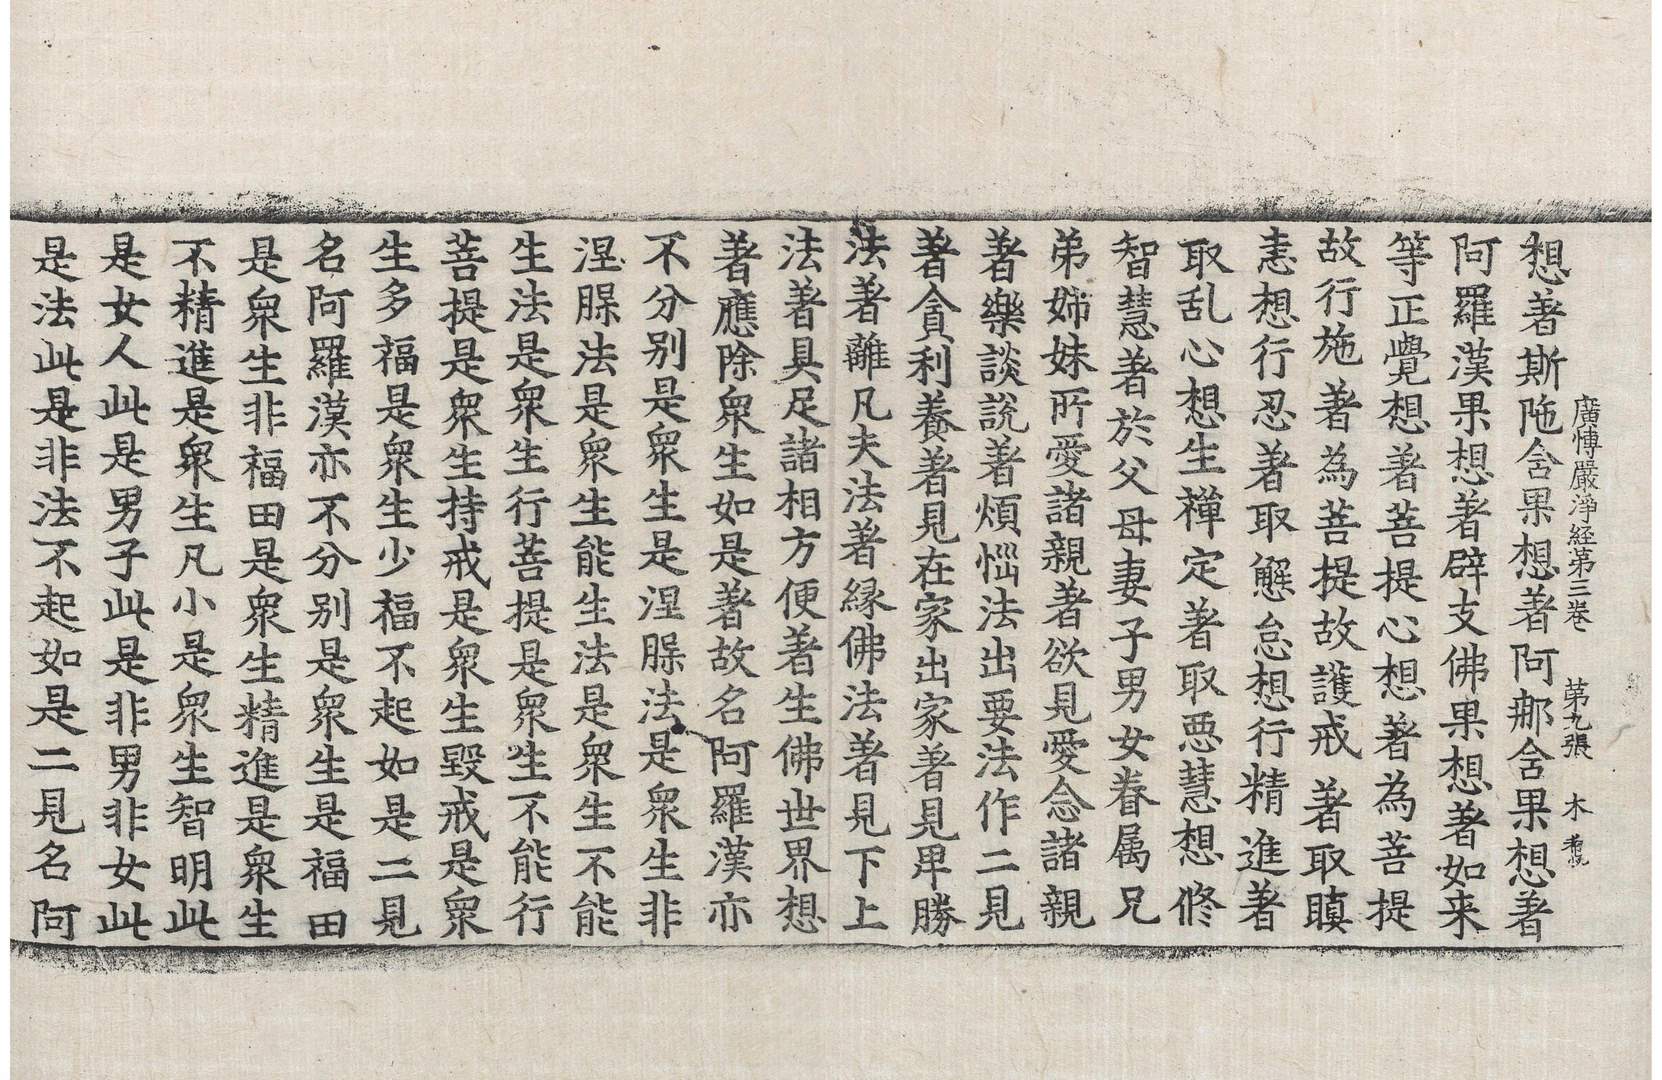 廣博嚴淨経第三卷 第九張 木
想著斯陁含果想著阿那含果想著
阿羅漢果想著辟支佛果想著如来
等正覺想著菩提心想著為菩提
故行施著為菩提故護戒著取瞋
恚想行忍著取懈怠想行精進著
取乱心想生禪定著取惡慧想修
智慧著於父母妻子男女眷属兄
弟姉妹所愛諸親著欲見愛念諸親
著樂談說著煩惱法出要法作二見
著貪利養著見在家出家著見卑勝
法著離凡夫法著縁佛法著見下上
法著具足諸相方便著生佛世界想
著應除衆生如是著故名阿羅漢亦
不分別是衆生是涅槃法是衆生非
涅槃法是衆生能生法是衆生不能
生法是衆生行菩提是衆生不能行
菩提是衆生持戒是衆生毀戒是衆
生多福是衆生少福不起如是二見
名阿羅漢亦不分別是衆生是福田
是衆生非福田是衆生精進是衆生
不精進是衆生凡小是衆生智明此
是女人此是男子此是非男非女此
是法此是非法不起如是二見名阿